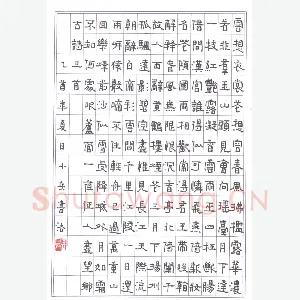 雲想衣裳花想容春風拂檻露華濃
若非群玉山頭見會向瑤臺月下逢
一枝紅艷露凝香雲雨巫山枉斷腸
借問漢宮誰得似可憐飛燕倚新妝
名花傾國兩相歡長得君王帶笑看
解釋春風無限恨沉香亭北倚闌干
故人西辭黃鶴樓煙花三月下揚州
孤帆遠影碧空盡唯見長江天際流
朝辭白帝彩雲間千里江陵一日還
兩岸猿聲啼不住輕舟已過萬重山
回樂峰前沙似雪受降城外月如霜
不知何處吹蘆管一夜征人盡望鄉
古詩